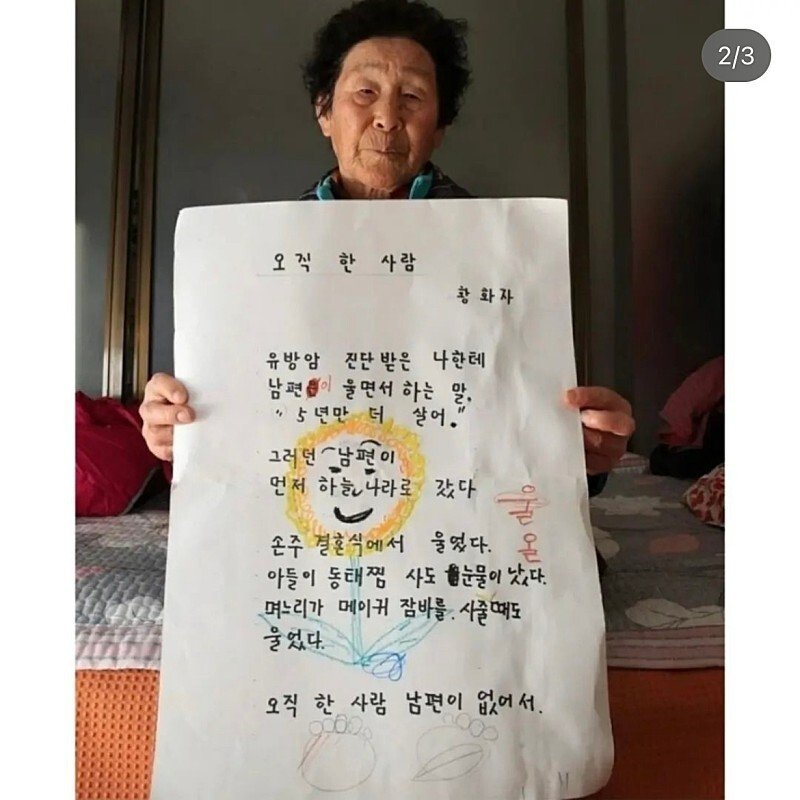 2/3
오직 한 사람
황화자
유방암 진단받은 나한테
남편이 울면서 하는 말,
"5년만 더 살어."
그러던 남편이
먼저 하늘나라로 갔다
손주 결혼식에서 울었다.
아들이 동태찜 사도 눈물이 났다.
며느리가 메이귀 잠바를 사줄때도
울었다.
오직 한 사람 남편이 없어서.